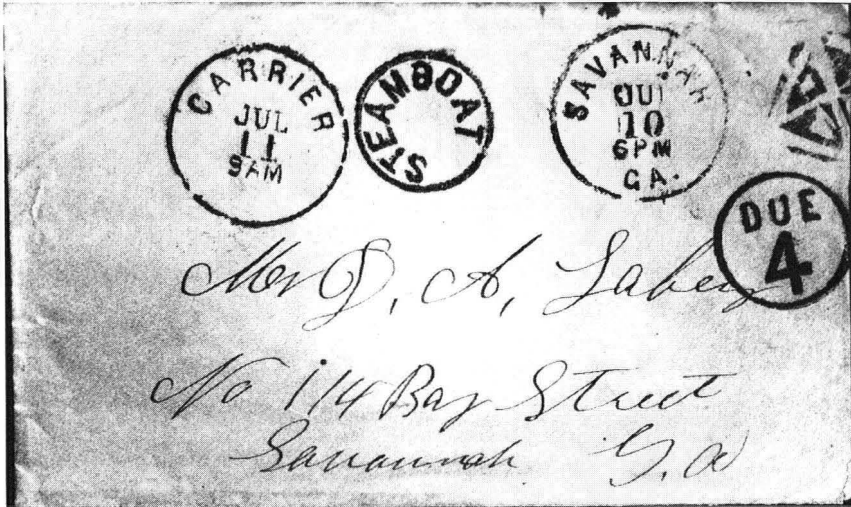 CARRIER
JUL
11
9AM
STEAMBOAT
SAVANNAH
10
6PM
GA.
DUE
4
Mr
A,
No 114 Bay Street
Savannah G.a